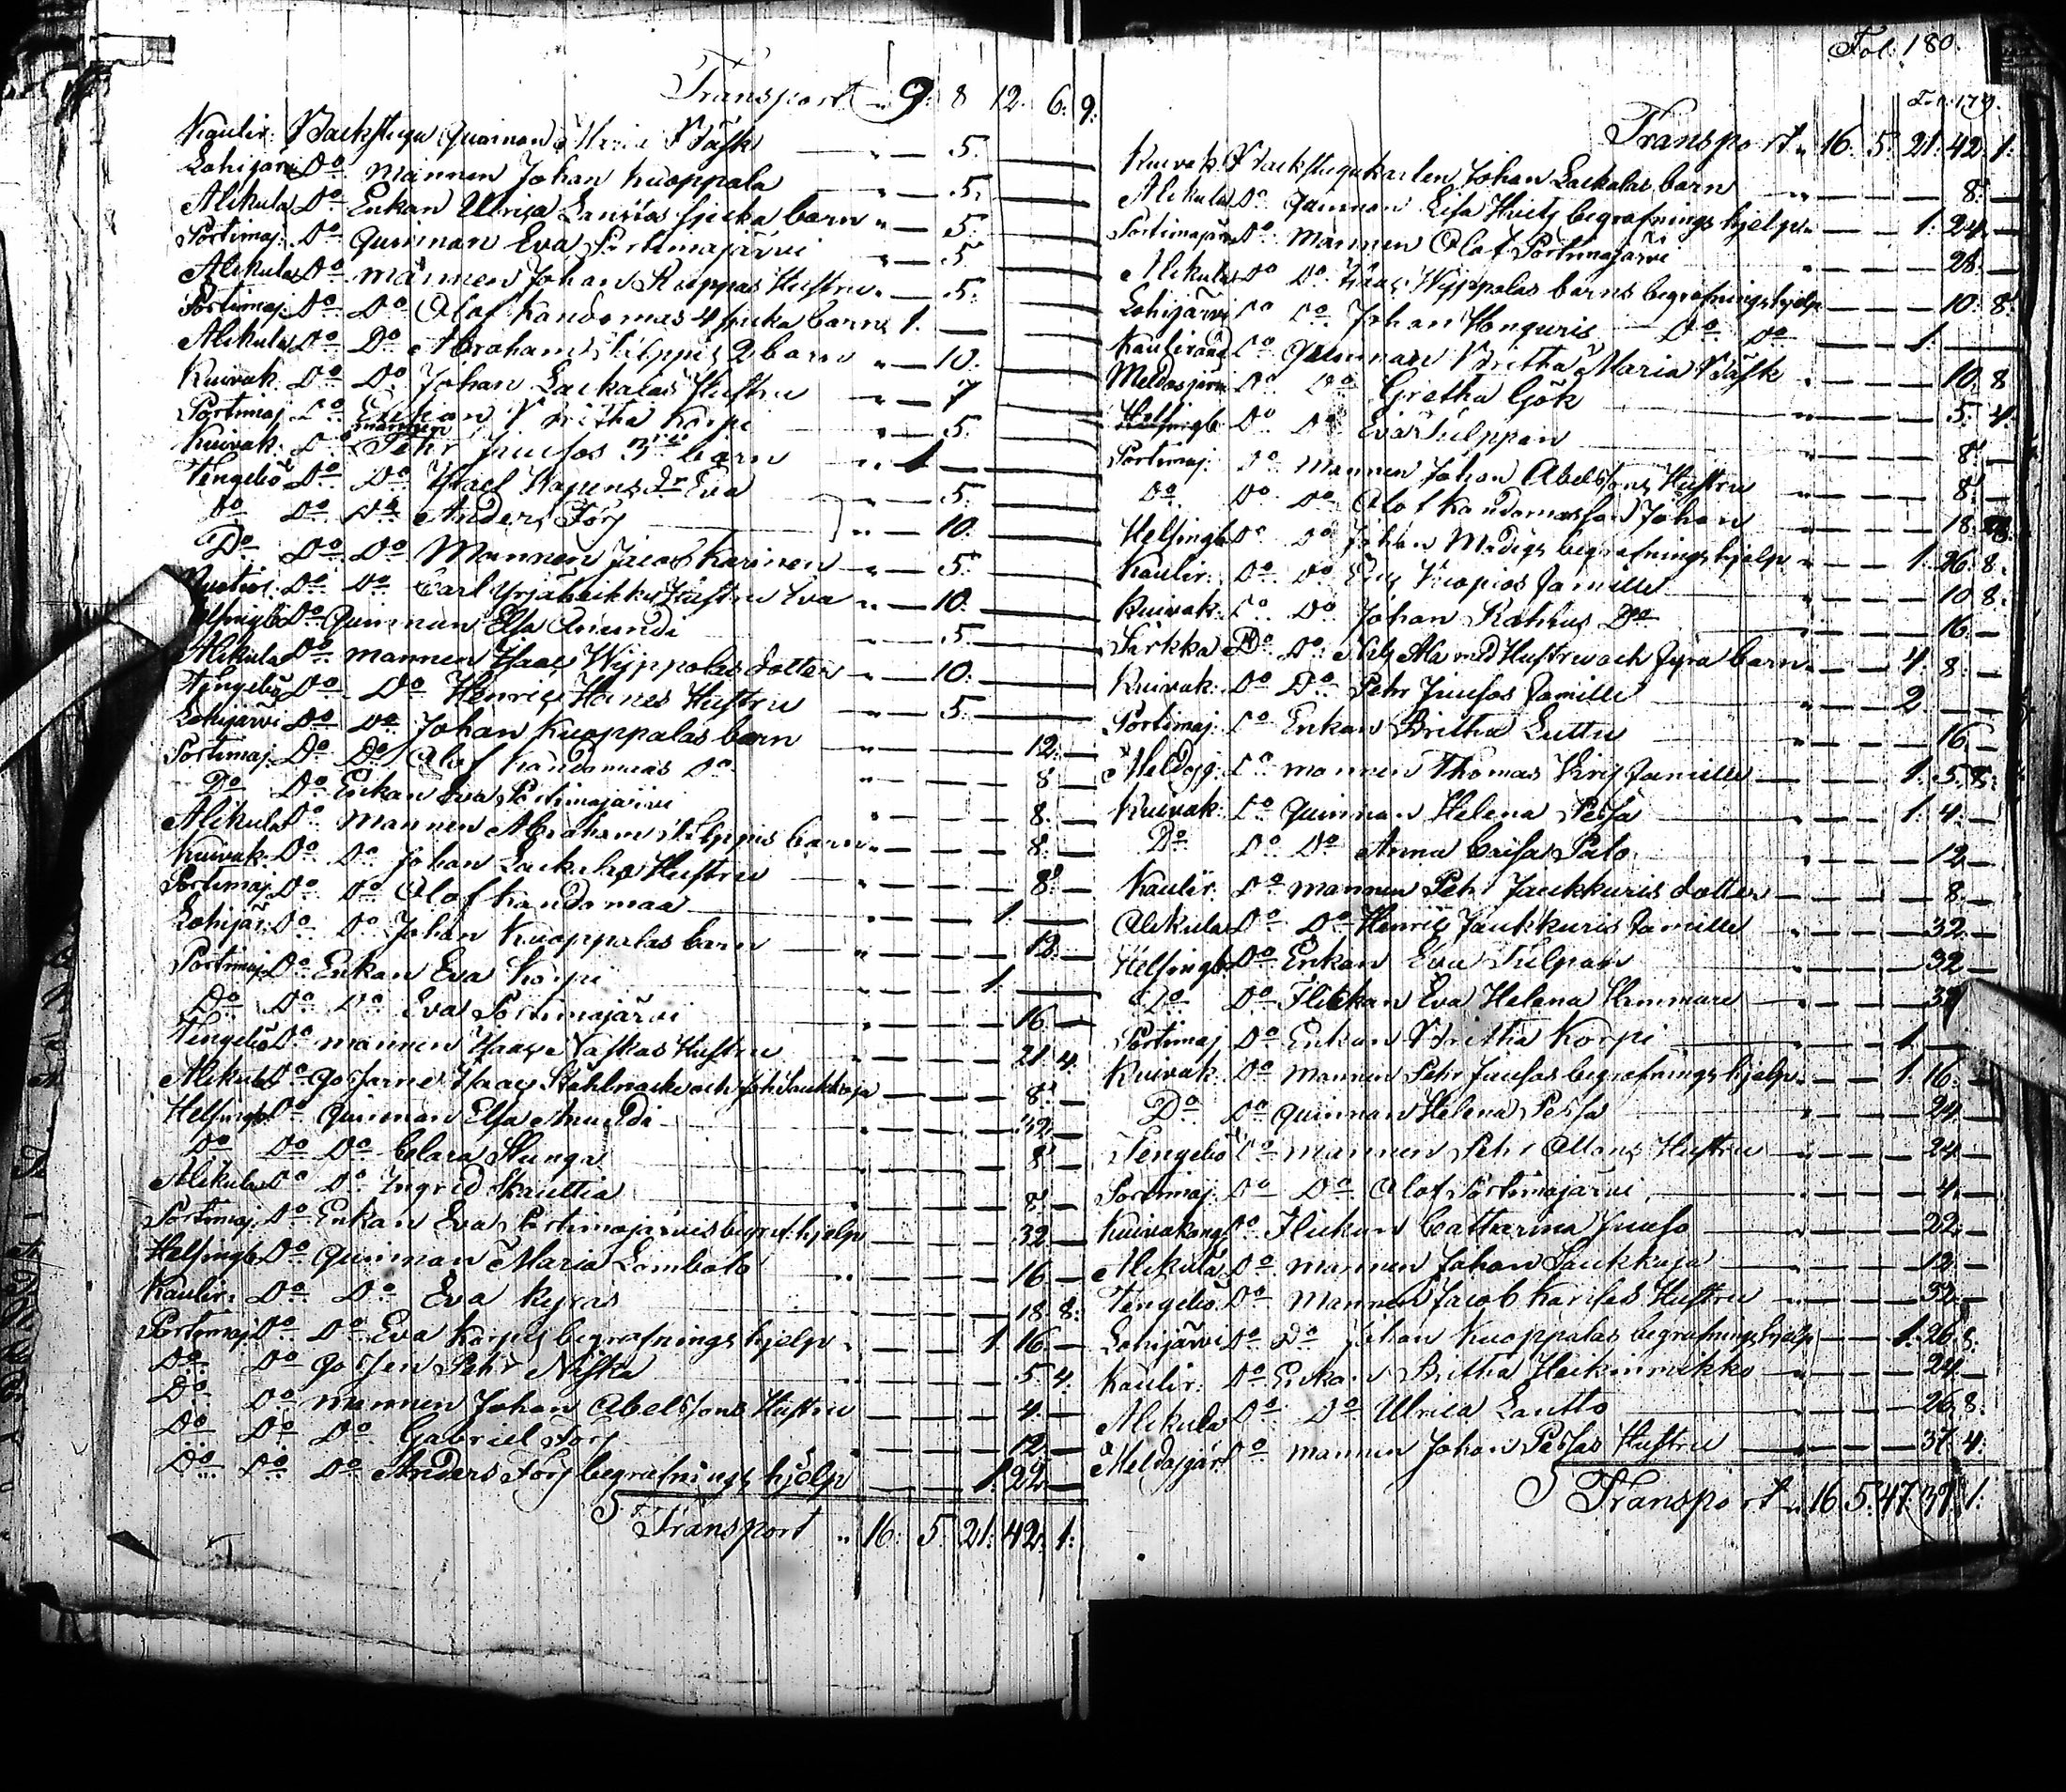 Transport „ 9. 8 12. 6. 9.
Kaulir. Backstugu Quinnan Maria Bäsk „ — 5. —
Lohijärvi Do Mannen Johan Kuoppala „ — 5. —
Alikula Do Enkan Ulrica sjuka barn „ — 5. —
Portimaj. Do Quinnan Eva Portimajärvi „ — 5. —
Alikula Do Mannen Johan Hustru „ — 5. —
Portimaj. Do Do Olof Kandomas 4 sjuka barn 1. —
Alikula Do Do Abraham 2 barn „ — 10. —
Kuivak. Do Do Johan Lackalas Hustru „ — 7 —
Portimaj. Do Enkan Britha Korpi „ — 5. —
Kuivak. Do mannen Pehr Juusos 3ne barn „ 1 —
Tengeliö Do Do Israel Dr Eva „ — 5. —
Do Do Do Anders Förj „ — 10. —
Do Do Do Mannen Jacob Karinen „ — 5. —
Do Do Carl Hustru Eva „ — 10. —
Helsingb. Do Quinnan Elsa Anundi „ — 5. —
Alikula Do mannen Isaac Wyppolas dotter „ — 10. —
Tengeliö Do Do Henric Hanes Hustru „ — 5. —
Lohijärvi Do Do Johan Kuoppalas barn „ — — — 12. —
Portimaj. Do Do Olof Kandomaas Do „ — — — 8 —
Do Do Enkan Eva Portimajärvi „ — — — 8. —
Alikula Do Mannen Abraham barn „ — — — 8. —
Kuivak. Do Do Johan Lackalas Hustru „ — — — 8. —
Portimaj. Do Do Olof Kandomaa „ — — 1. —
Lohijär. Do Do Johan Kuoppalas barn „ — — — 12. —
Portimaj. Do Enkan Eva Korpi „ — — 1. —
Do Do Do Eva Portimajärvi „ — — — 16 —
Tengeliö Do mannen Isaac Hustru „ — — — 21. 4.
Alikula Do Gossarne Isaac Ståhlnacke och Joh. Laukkoja — — — 8. —
Helsingb. Do Quinnan Elsa Anundi „ — — — 32. —
Do Do Do Clara Stunga „ — — — 8 —
Alikula Do Do Ingrid „ — — — 8 —
Portimaj. Do Enkan Eva Portimajärvis begraf. hjelp — — — 32. —
Helsingb. Do Quinnan Maria Lombolo „ — — — 16 —
Kaulir. Do Do Eva Kyras „ — — — 18. 8.
Portimaj. Do Do Eva Korpis begrafnings hjelp „ — — 1. 16. —
Do Do Gossen Pehr Niska „ — — — 5. 4.
Do Do mannen Johan Abelssons Hustru — — — 4. —
Do Do Do Gabriel Förj „ — — — 12. —
Do Do Do Anders Förj begrafnings hjelp — — 1. 22. —
Transport „ 16. 5. 21. 42. 1.
Fol. 180.
Fol. 179.
Transport „ 16. 5. 21. 42. 1.
Kuivak. Backstugukarlen Johan Lackalas barn „ — — — 8. —
Alikula Do Quinnan Lisa begrafnings hjelp „ — — 1. 24. —
Portimajär. Do Mannen Olof Portimajärvi „ — — — 28. —
Alikula Do Do Isaac Wyppolas barns begrafningshjelp — — — 10. 8.
Lohijärvi Do Do Johan Honguris Do Do — — 1. —
Kauliranda Do Quinnan Britha Maria Bäsk „ — — — 10. 8
Meldosjärvi Do Do Gretha Gök „ — — — 5. 4.
Helsingb. Do Do Eva Tulppan „ — — — 8. —
Portimaj. Do Mannen Johan Abelssons Hustru „ — — — 8. —
Do Do Do Olof Kandomas son Johan „ — — — 18.
Helsingb. Do Do Johan begrafnings hjelp „ — — 1. 26. 8.
Kaulir. Do Do Eric Kuopios familie „ — — — 10. 8.
Kuivak. Do Do Johan Do „ — — — 16 —
Do Do Nils Ala med Hustru och fyra barn „ — — 4. 8. —
Kuivak. Do Do Pehr Juusos familie „ — — 2. —
Portimaj. Do Enkan Britha Luttu „ — — — 16. —
Meldosj. Do mannen Thomas familie — — 1. 5. 8.
Kuivak. Do Quinnan Helena Pessa „ — — 1. 4. —
Do Do Do Anna Caisa Palo „ — — — 12. —
Kaulir. Do mannen Pehr Jaukkuris dotter „ — — — 8. —
Alikula Do Do Henric Jaukkuris familie „ — — — 32. —
Helsingb. Do Enkan Eva Tulpan „ — — — 32 —
Do Do Flickan Eva Helena — — — 32
Portimaj. Do Enkan Britha Korpi „ — — 1 —
Kuivak. Do Mannen Pehr Juusos begrafnings hjelp „ — — 1. 16. —
Do Do Quinnan Helena Pessa „ — — — 24. —
Tengeliö Do mannen Pehr Hustru „ — — — 24. —
Portimaj. Do Do Olof Portimajärvi „ — — — 4. —
Kuivakang. Do Flickan Catharina Juuso — — — 22. —
Alikula Do Mannen Johan Laukkaja „ — — — 12. —
Tengeliö Do Mannen Jacob Hustru „ — — — 32. —
Lohijärvi Do Do Johan Kuoppalas begrafnings hjelp — — 1. 26. 8.
Kaulir. Do Enkan Britha Heikinmikko „ — — — 24. —
Alikula Do Do Ulrica Lantto „ — — — 26. 8.
Meldosjär. Do mannen Johan Pessas Hustru — — — 37. 4.
Transport „ 16. 5. 47. 37. 1.